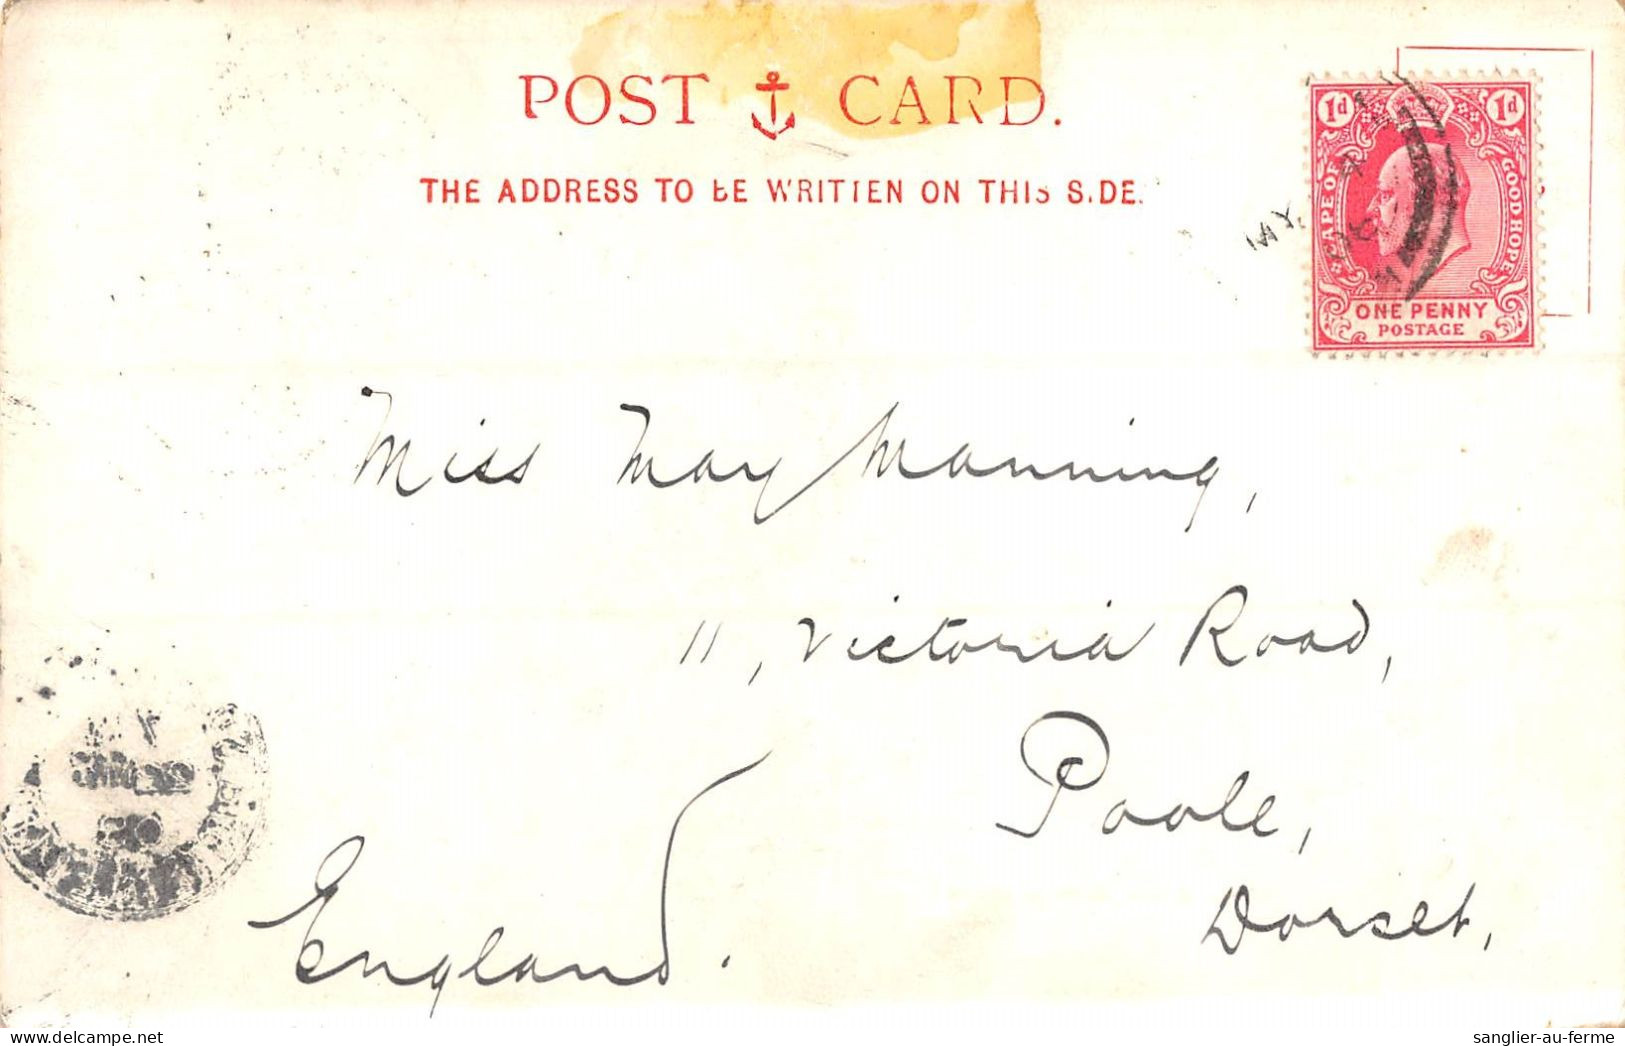 POST CARD.
THE ADDRESS TO BE WRITTEN ON THIS SIDE.
1d 1d
CAPE OF GOOD HOPE
ONE PENNY
POSTAGE
Miss May Manning,
11, Victoria Road,
Poole,
Dorset,
England.
sanglier-au-ferme